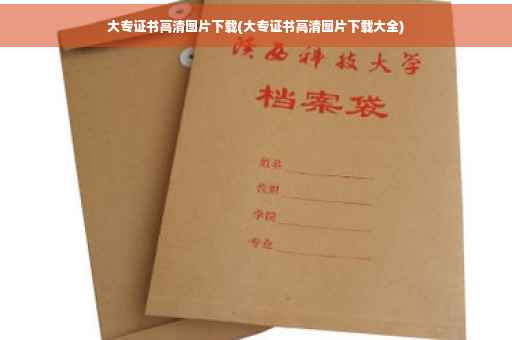 大专证书高清图片下载(大专证书高清图片下载大全)
陕西科技大学
档案袋
姓名
学院
专业